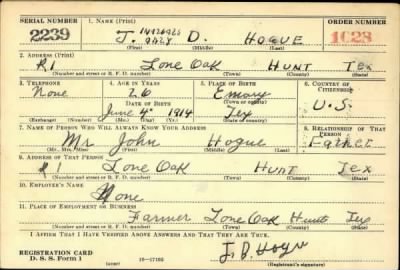 SERIAL NUMBER 1. NAME (Print) ORDER NUMBER
2239 J. INITIALS ONLY D. HOGUE 1028
(First) (Middle) (Last)
2. ADDRESS (Print)
R1 Lone Oak HUNT Tex
(Number and street or R. F. D. number) (Town) (County) (State)
3. TELEPHONE 4. AGE IN YEARS 5. PLACE OF BIRTH 6. COUNTRY OF CITIZENSHIP
None 26 Emory
DATE OF BIRTH (Town or county)
June 4 1914 Tex U.S.
(Exchange) (No.) (Mo.) (Day) (Yr.) (State or country)
7. NAME OF PERSON WHO WILL ALWAYS KNOW YOUR ADDRESS 8. RELATIONSHIP OF THAT PERSON
Mr John Hogue Father
(Mr., Mrs., Miss) (First) (Middle) (Last)
9. ADDRESS OF THAT PERSON
R1 Lone Oak HUNT Tex
(Number and street or R. F. D. number) (Town) (County) (State)
10. EMPLOYER'S NAME
None
11. PLACE OF EMPLOYMENT OR BUSINESS
Farmer Lone Oak Hunt Tex
(Number and street or R. F. D. number) (Town) (County) (State)
I AFFIRM THAT I HAVE VERIFIED ABOVE ANSWERS AND THAT THEY ARE TRUE.
REGISTRATION CARD J. D. Hogue
D. S. S. Form 1 (Registrant's signature)